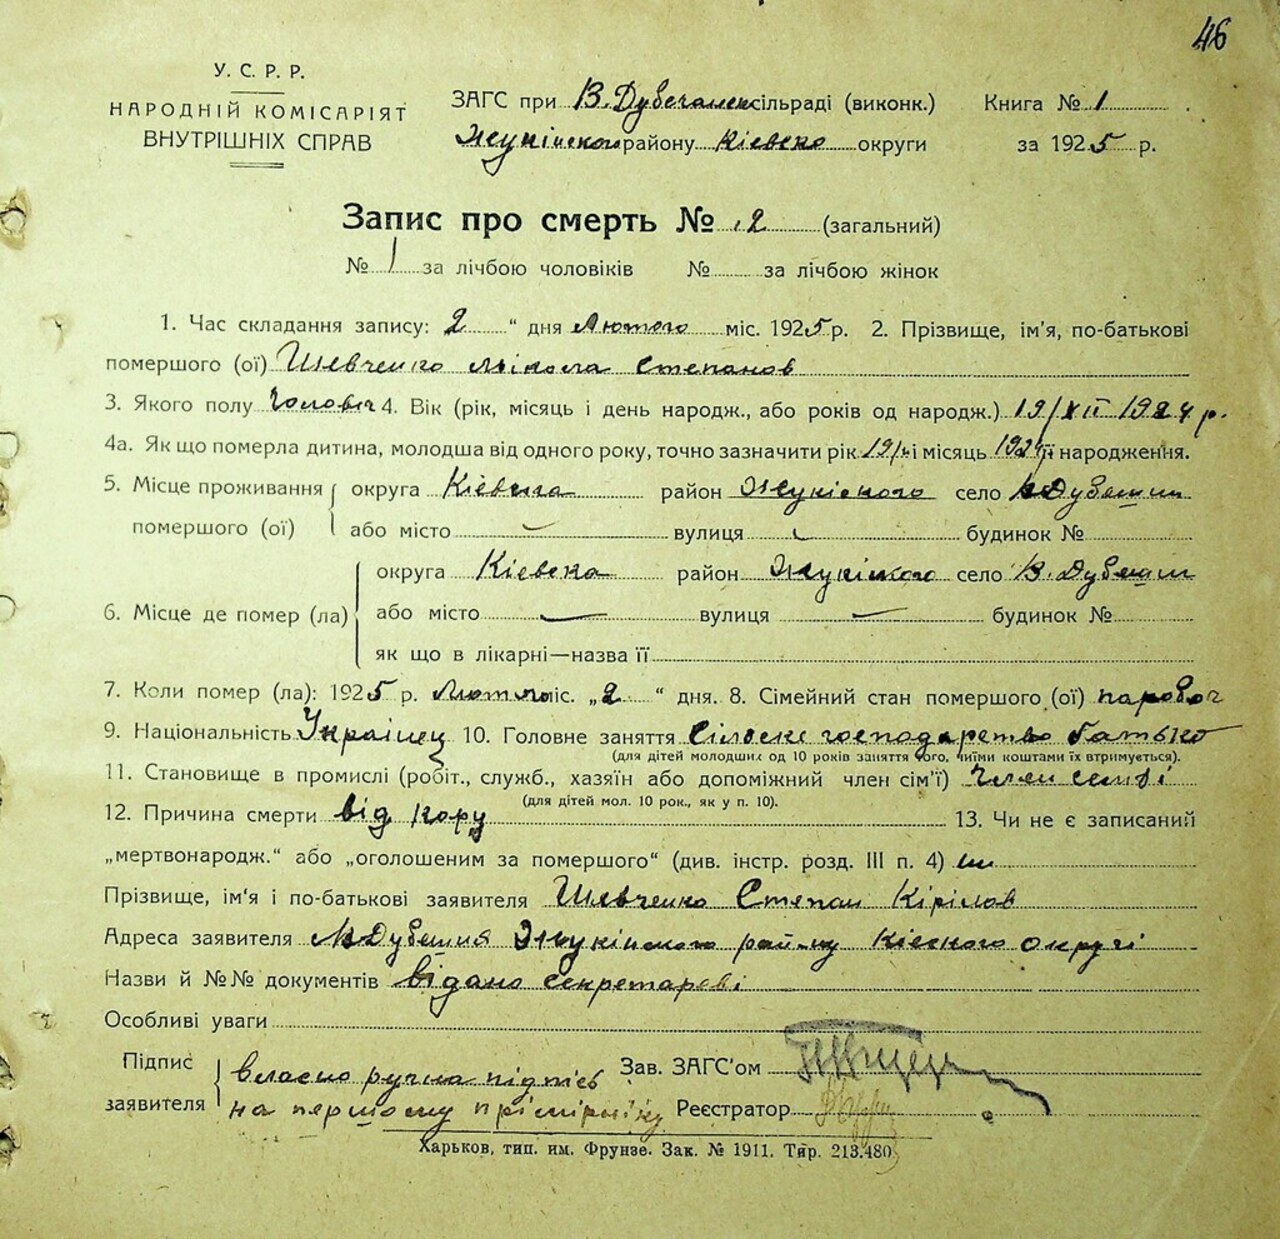 46
У. С. Р. Р.
НАРОДНІЙ КОМІСАРІЯТ
ВНУТРІШНІХ СПРАВ
ЗАГС при В. Дубечанск сільраді (виконк.) Книга № 1
Жукінского району Кієвско округи за 1925 р.
Запис про смерть № 2 (загальний)
№ 1 за лічбою чоловіків № за лічбою жінок
1. Час складання запису: 2 “ дня Лютого міс. 1925 р. 2. Прізвище, ім'я, по-батькові
помершого (ої) Шевченко Мікола Степанов
3. Якого полу Чоловіч 4. Вік (рік, місяць і день народж., або років од народж.) 19/XII 1924 р.
4а. Як що померла дитина, молодша від одного року, точно зазначити рік 19/ і місяць 1924 її народження.
5. Місце проживання помершого (ої) округа Кієвска район Жукінского село Дубешня
або місто вулиця будинок №
6. Місце де помер (ла) округа Кієвска район Жукінского село В. Дубешня
або місто вулиця будинок №
як що в лікарні—назва її
7. Коли помер (ла): 1925 р. Лютого міс. „2 “ дня. 8. Сімейний стан помершого (ої) паробоч
9. Національність Українец 10. Головне заняття Сільске господарство батько
(для дітей молодших од 10 років заняття того, чиїми коштами їх втримується).
11. Становище в промислі (робіт., служб., хазяїн або допоміжний член сім'ї) член семʼі
(для дітей мол. 10 рок., як у п. 10).
12. Причина смерти від кору 13. Чи не є записаний
„мертвонародж.“ або „оголошеним за помершого“ (див. інстр. розд. III п. 4) ні
Прізвище, ім'я і по-батькові заявителя Шевченко Степан Кірілов
Адреса заявителя Дубешня Жукінского району Кієвского округі
Назви й №№ документів відано секретареві
Особливі уваги
Підпис заявителя власно ручна підпісь Зав. ЗАГС'ом
на першому прімірніку Реєстратор
Харьков, тип. им. Фрунзе. Зак. № 1911. Тир. 213.480